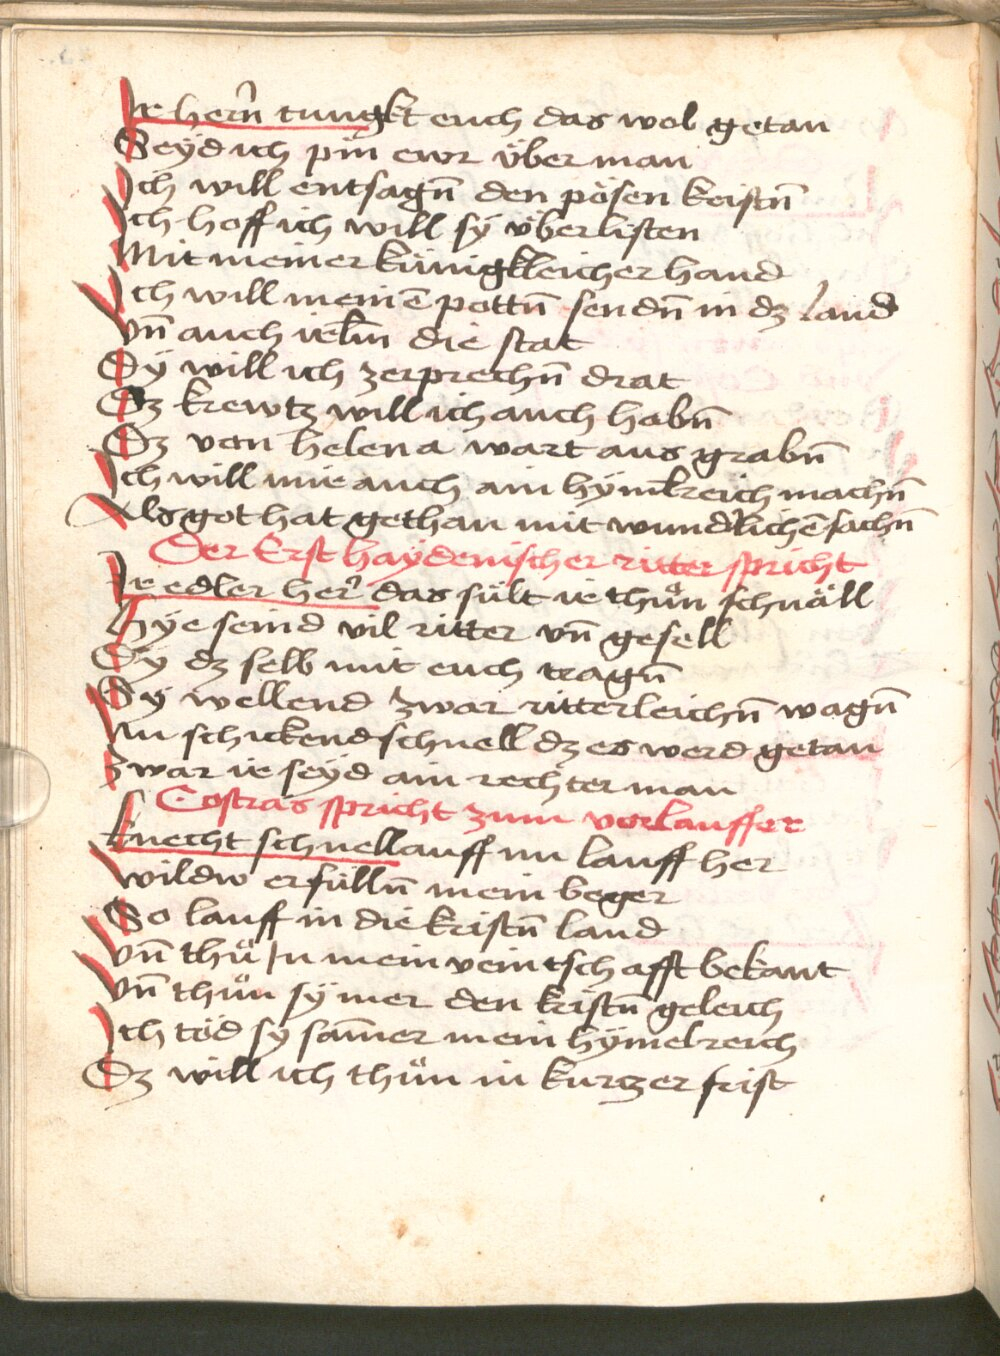 Ir hern̄ tungkt euch das wol getan
Seÿd ich pin ewr v̈ber man
Ich will entsagn̄ den pösen kristn̄
Ich hoff ich will sÿ v̈berlisten
Mit meiner künigkleicher hand
Ich will meinē pottn̄ sendn̄ in dz land
vn̄ auch ierl̄m die stat
Dÿ will ich zerprechn̄ drat
Dz krewtz will ich auch habn̄
Dz von helena wart aus grabn̄
Ich will mir auch ain hÿmlreich machn̄
Als got hat gethan mit wundˀlichē sachn̄
Der Erst haÿdenischer ritter spricht
Ir edler herˀ das sült ir thůn schnäll
Hÿe seind vil ritter vn̄ gesell
Dÿ dz selb mit euch tragn̄
Dÿ wellend zwar ritterleichn̄ wagn̄
Nu schickend schnell dz es werd getan
zwar ir seÿd ain rechter man
Cosras spricht zum vorlauffer
knecht schnell auff nu lauff her
wildw erfülln̄ mein beger
So lauff in die kristn̄ land
vn̄ thů In mein veintschafft bekant
vn̄ thůn sÿ mer den kristn̄ geleich
Ich töd sÿ sam̄er mein hÿmelreich
Dz will ich thůn in kurtzer frist